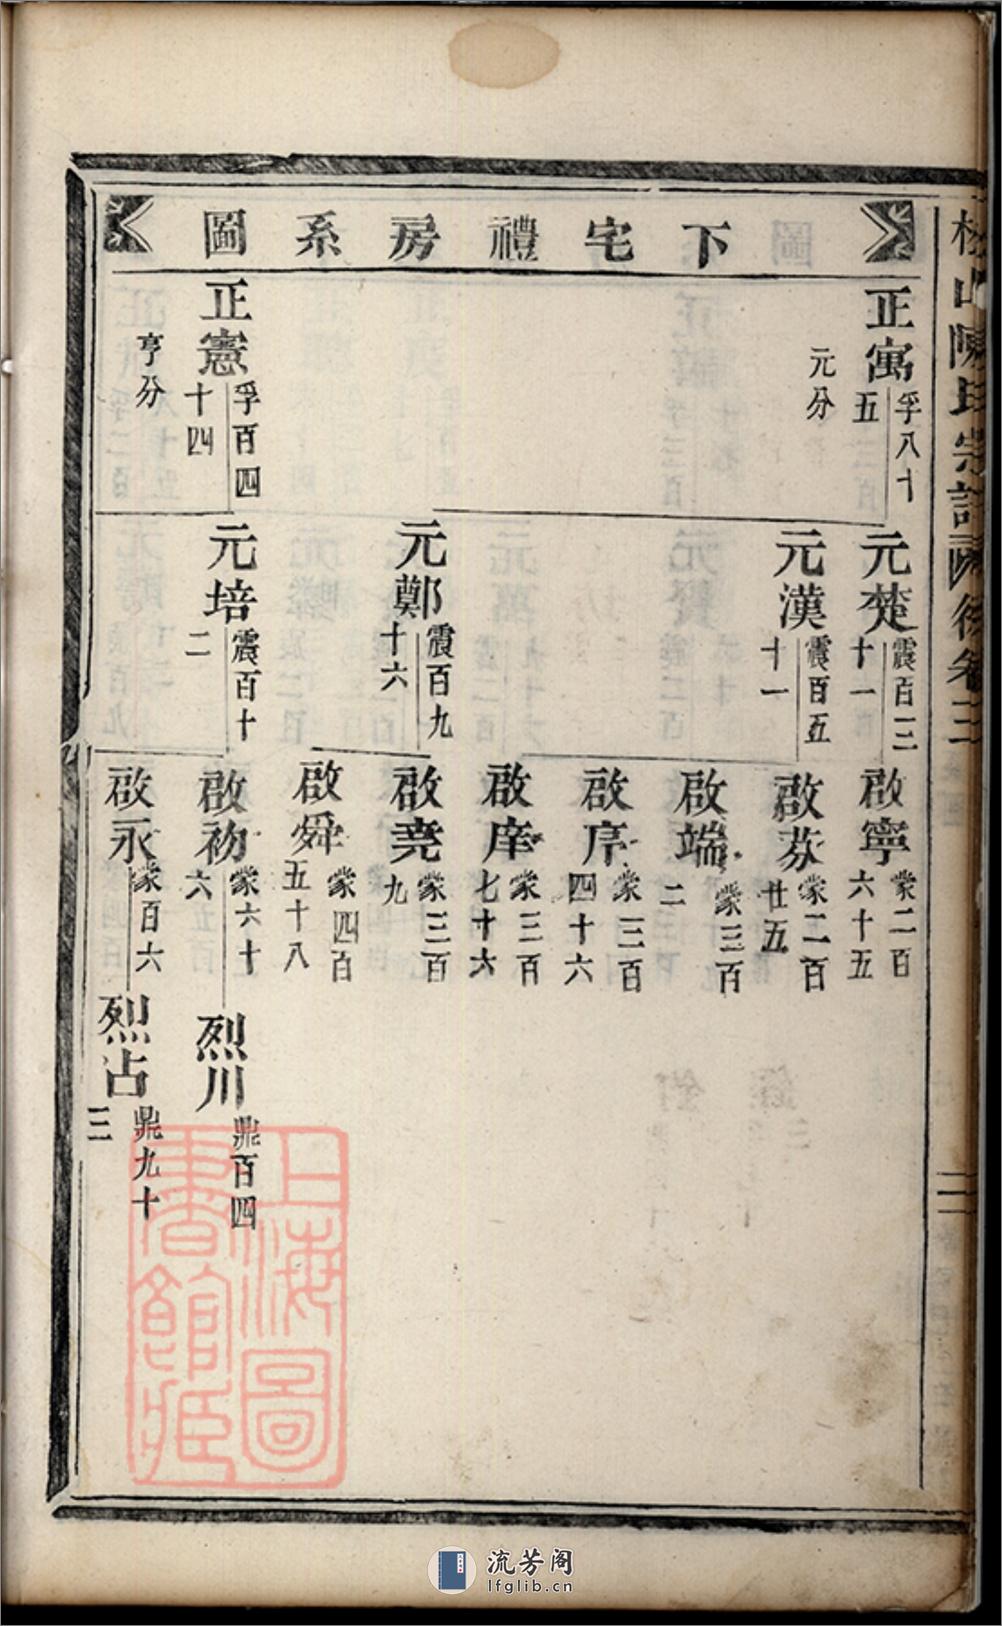 下宅禮房系圖
正寓 孚八十五
元分
正憲 孚百四十四
亨分
元楚 震百三十一
元漢 震百五十一
元鄭 震百九十六
元培 震百十二
啟寧 蒙二百六十五
啟芬 蒙二百廿五
啟端 蒙三百二
啟序 蒙三百四十六
啟庠 蒙三百七十六
啟堯 蒙三百九
啟舜 蒙四百五十八
啟初 蒙六十六
啟永 蒙百六
烈川 鼎百四
烈占 鼎九十三
山陳氏宗譜 後卷三
二
上海圖書館藏
流芳阁
lfglib.cn